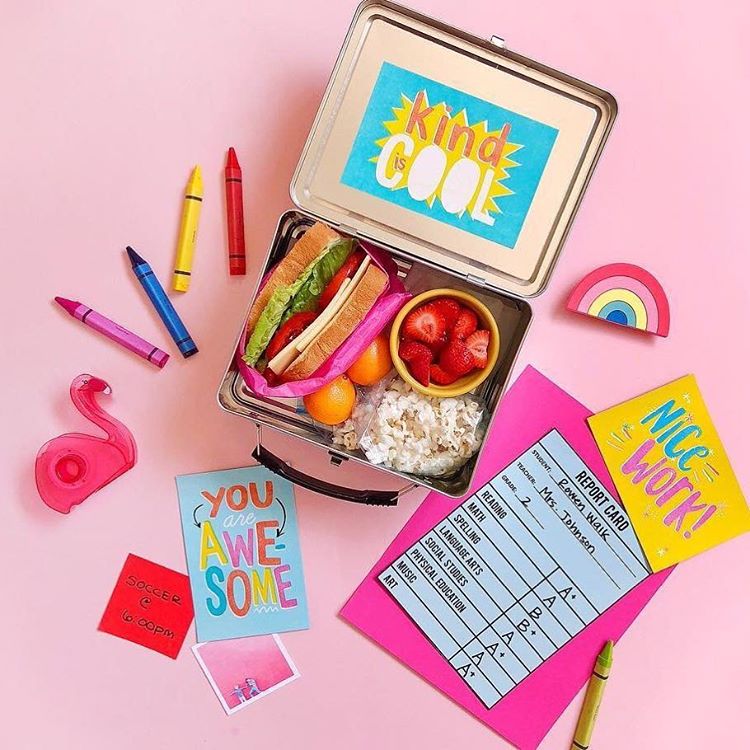 kind
is
COOL
YOU
are
AWE-
SOME
SOCCER
@
6:00PM
NICE
WORK!
REPORT CARD
STUDENT: Rowen Waik
TEACHER: Mrs. Johnson
GRADE: 2
READING A+
MATH A
SPELLING B
LANGUAGE ARTS B+
SOCIAL STUDIES A
PHYSICAL EDUCATION A+
MUSIC A
ART A+